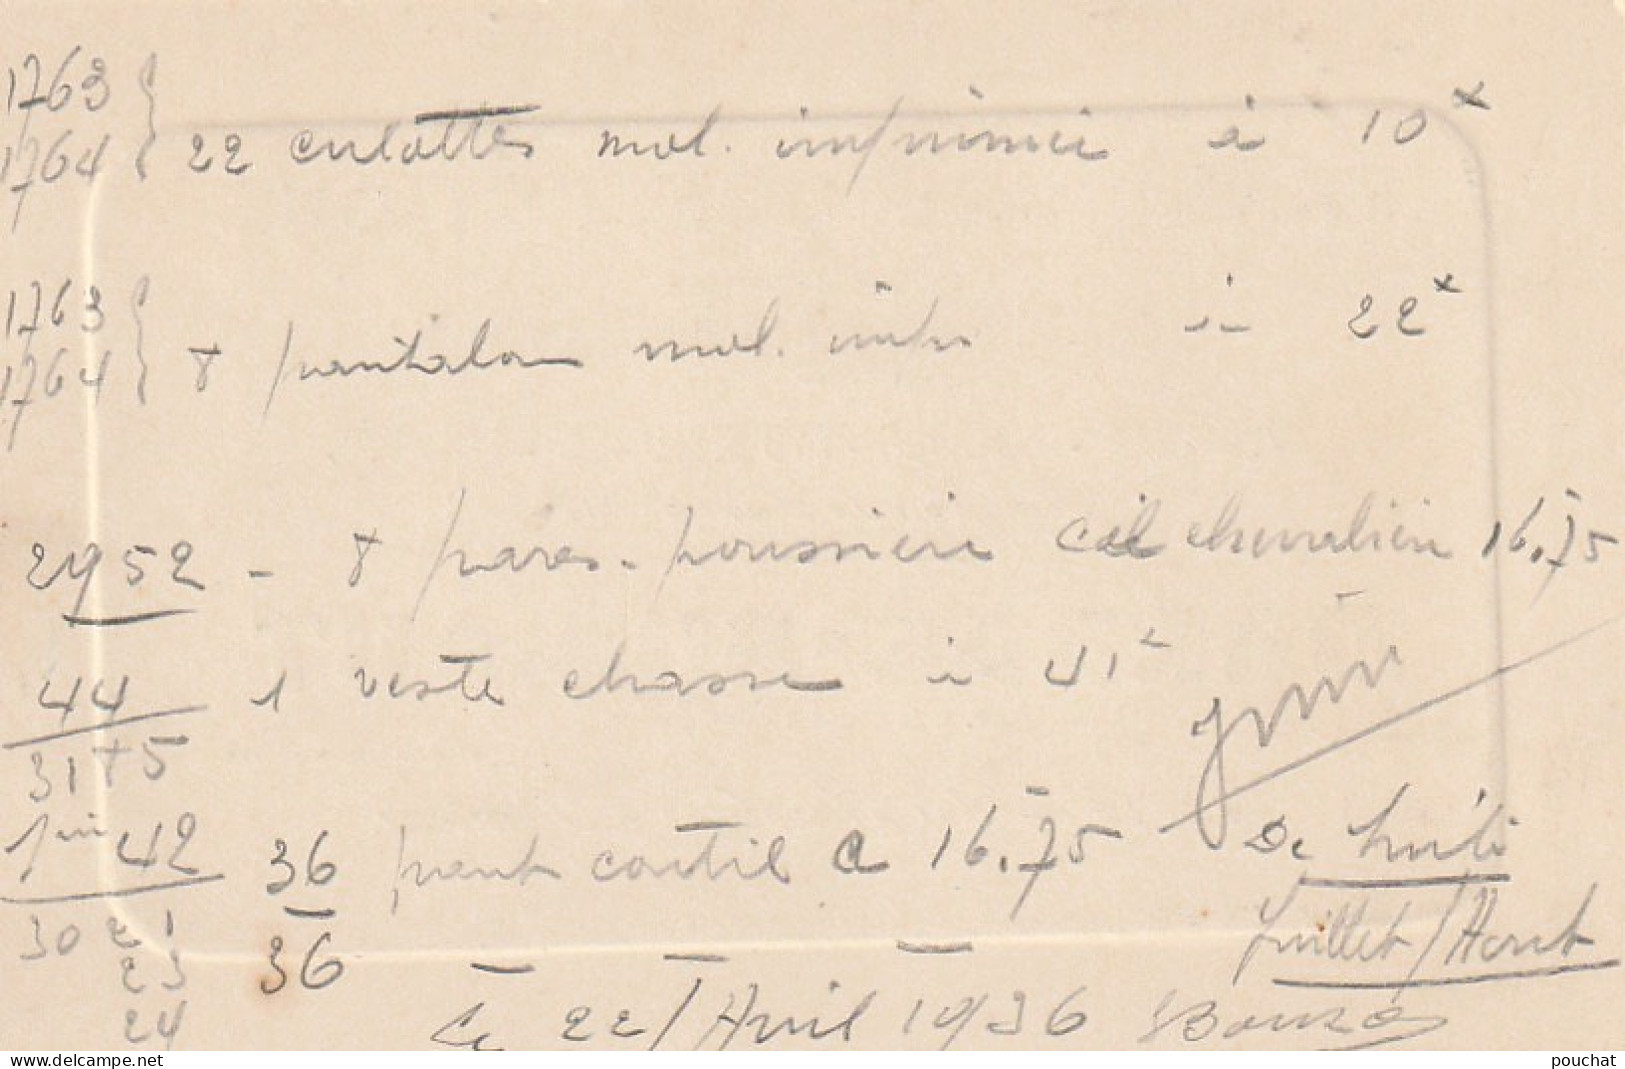 1763
1764 } 22 culottes mol. imprimée à 10 x
1763
1764 } 8 pantalon mol. impr à 22 x
2952 - 8 pares-poussière chevalière 16.75
44 1 veste chasse à 41
3175
42 36 pant coutil a 16.75 De suite
30 21 36 Juillet/Aout
23
24 Le 22/Avril 1936
www.delcampe.net
pouchat